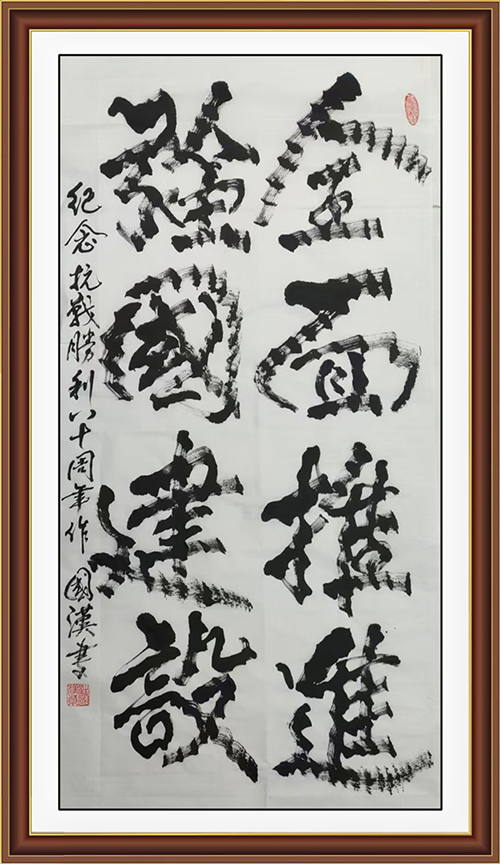 全面推進
強國建設
紀念抗戰勝利八十周年作 國漢書